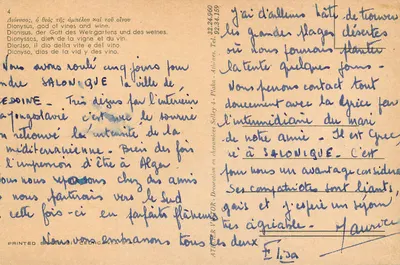 4
Διόνυσος, ὁ θεὸς τῆς ἀμπέλου καὶ τοῦ οἴνου
Dionysus, god of vines and wine
Dionisus, der Gott des Weingartens und des Weines
Dionyssos, dieu de la vigne et du vin.
Dioniso, il dio della vite e del vino.
Dionysio, dios de la vid y del vino.
Nous avons roulé cinq jours pour
dre SALONIQUE la ville de
EDOINE. Très déçus par l'intérieur
a Yougoslavie c'est le sourire
on retrouvé les
méditerranéenne. Bien des fois
l'impression d'être à Alger
nous nous reposons chez des amis
nous partirons vers le Sud
cette fois-ci en parfaits flâneurs
Nous vous embrassons tous les deux
PRINTED
J'ai d'ailleurs hâte de trouver
les grandes plages désertes
où nous pourrons planter
la tente quelques jours -
Nous prenons contact tout
doucement avec la Grèce par
l'intermédiaire du mari
de notre amie. Il est Grec
né à SALONIQUE. C'est
pour nous un avantage considéra
Ses compatriotes sont liants,
gais et j'espère un séjour
très agréable.
Maurice
Elisa